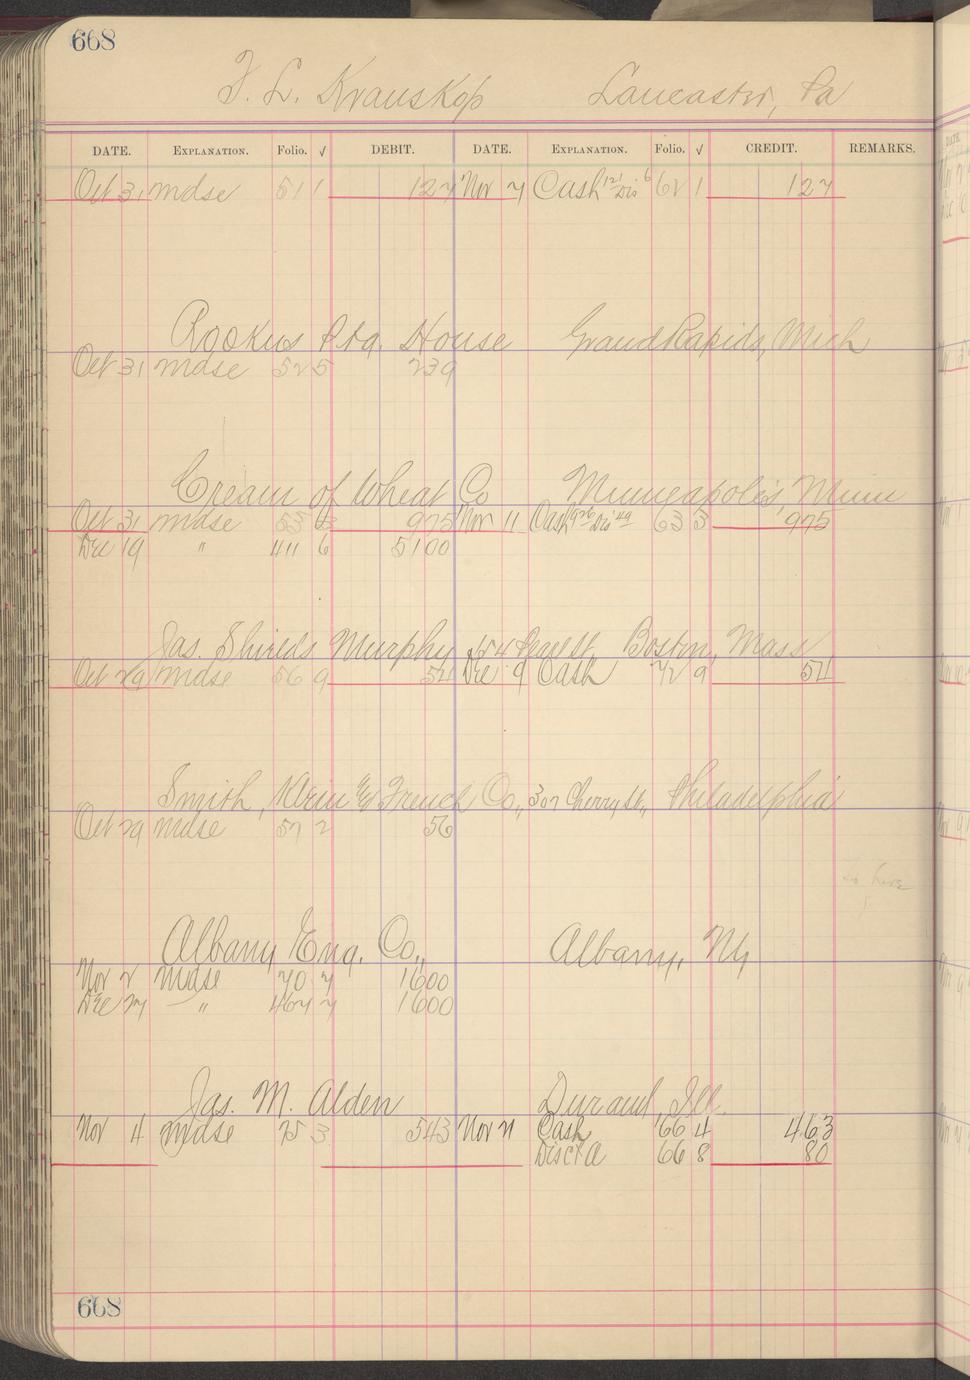 668
F. L. Krauskop Lancaster, Pa
DATE. EXPLANATION. Folio. √ DEBIT. DATE. EXPLANATION. Folio. √ CREDIT. REMARKS.
Oct 31 mdse 51 1 127 Nov 7 Cash 121 Dis 6 62 1 127
Ptg. House Grand Rapids, Mich
Oct 31 mdse 52 5 239
Cream of Wheat Co Minneapolis, Minn
Oct 31 mdse 53 3 975 Nov 11 Cash 926 Dis 49 63 3 975
Dec 19 " 411 6 5100
Jas. Shields Murphy 154 Pearl St. Boston, Mass
Oct 29 mdse 56 9 54 Dec 9 Cash 72 9 54
Smith, Klein & French Co., 307 Cherry St., Philadelphia
Oct 29 mdse 57 2 56
To have
Albany Eng. Co., Albany, Ny
Nov 2 mdse 70 7 1600
Dec 27 " 467 7 1600
Jas. M. Alden Durand, Ill.
Nov 4 mdse 75 3 543 Nov 11 Cash 66 4 463
Disct A 66 8 80
668